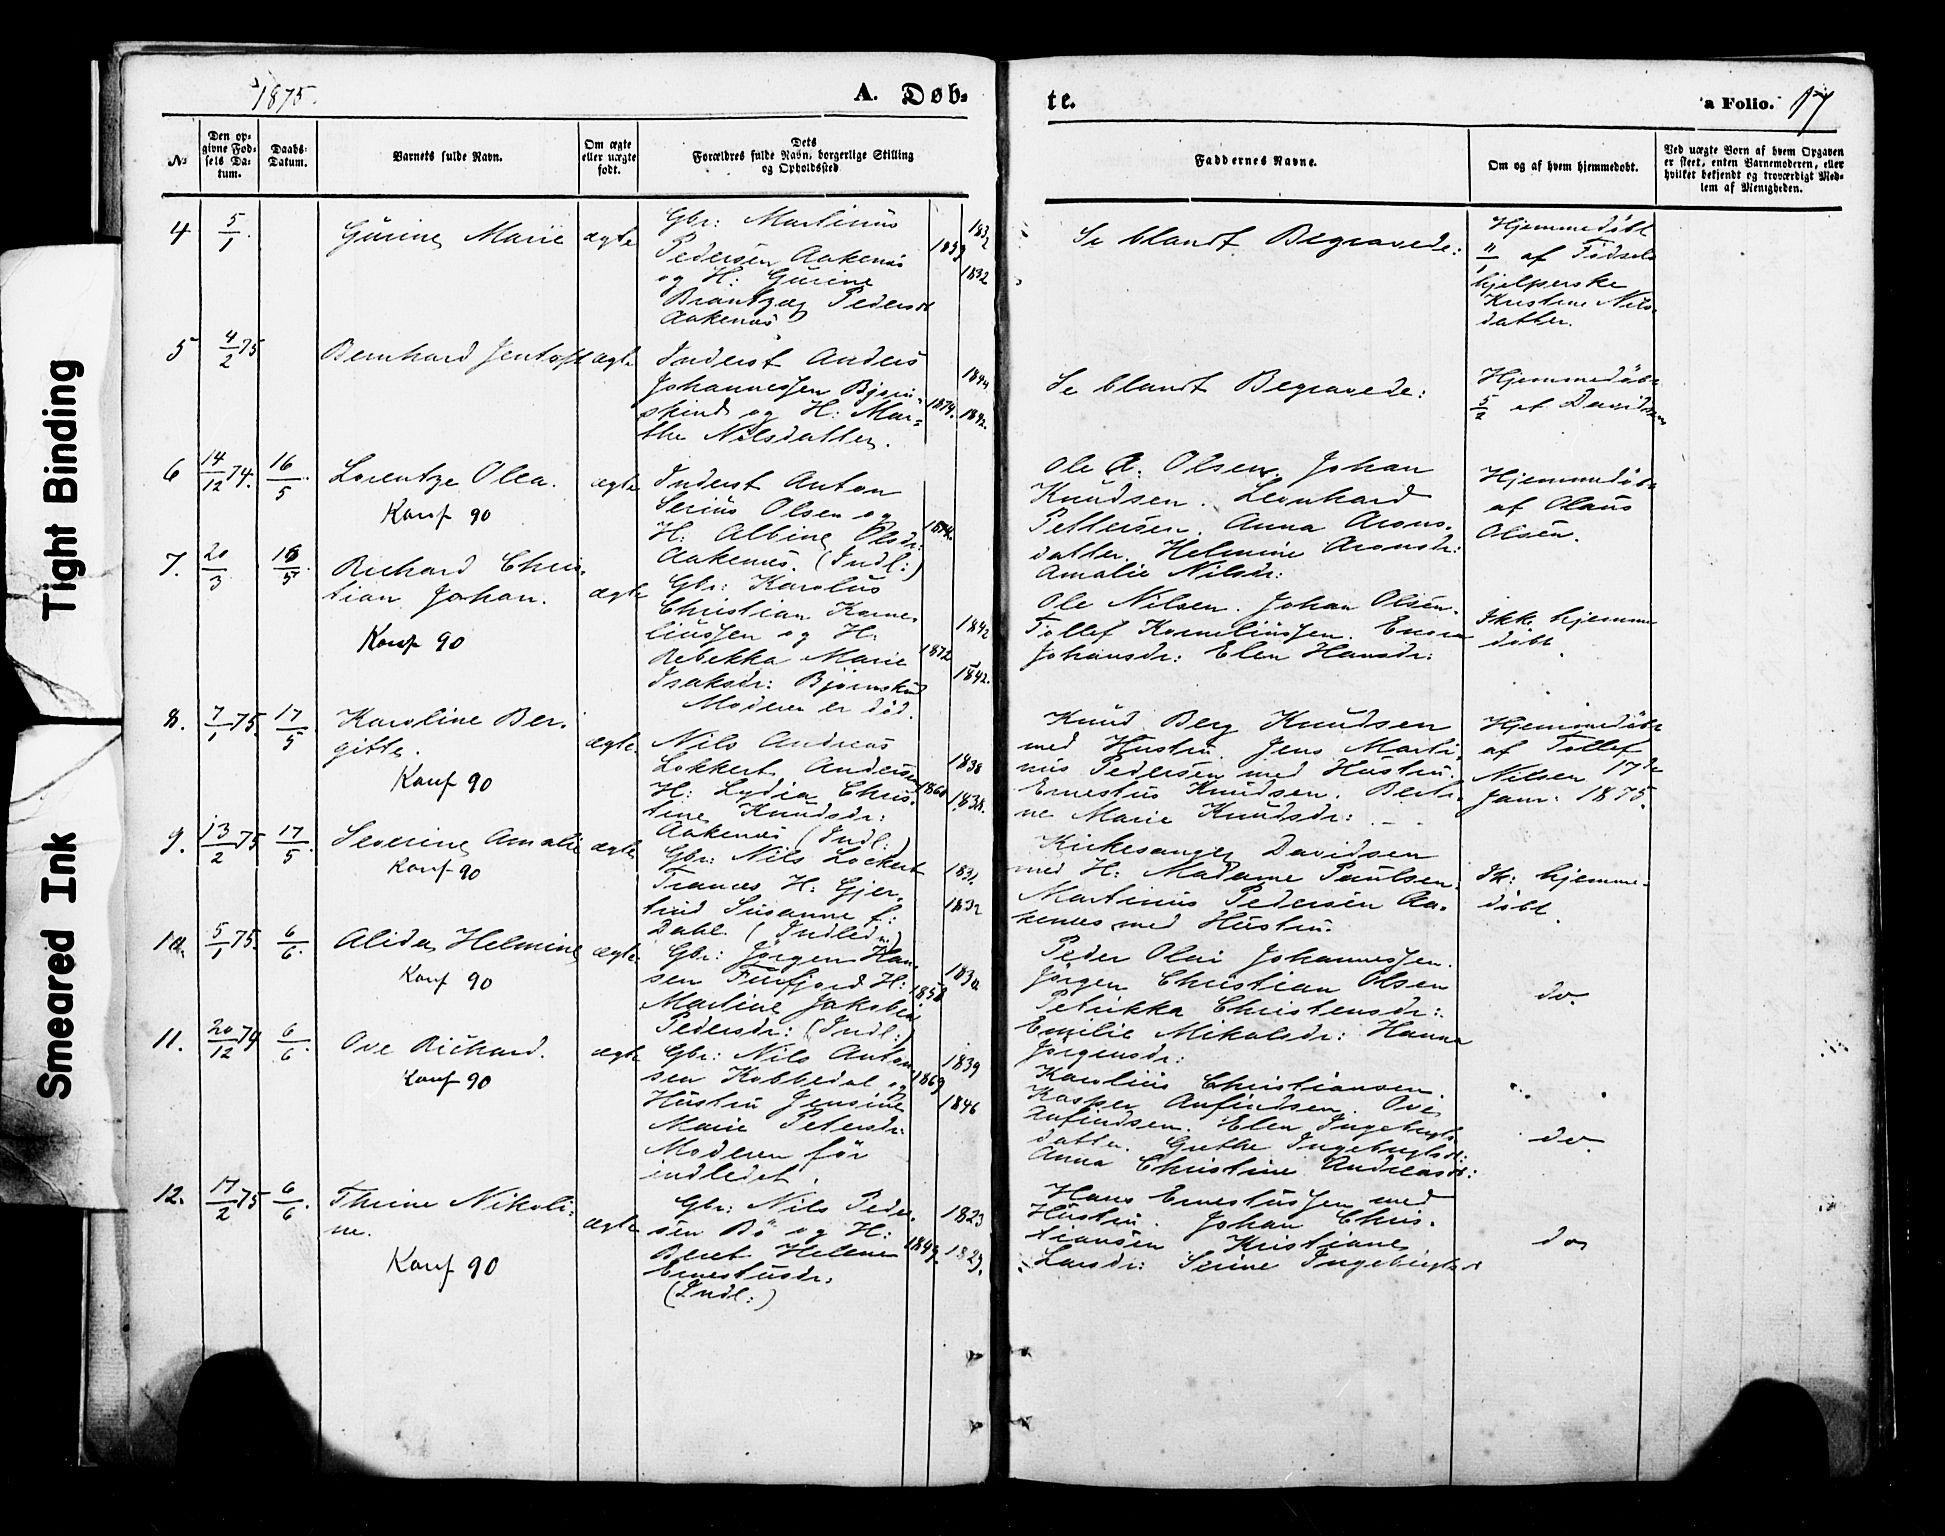 1875.
A. Døb-
te.
a Folio. 17
No
Den op-
givne Fød-
sels Da-
tum.
Daabs-
Datum.
Barnets fulde Navn.
Om ægte
eller uægte
født.
Dets
Forældres fulde Navn, borgerlige Stilling
og Opholdssted
Faddernes Navne.
Om og af hvem hjemmedøbt.
Ved uægte Born af hvem Opgaven
er skeet, enten Barnemoderen, eller
hvilket bekjendt og troværdigt Med-
lem af Menigheden.
4
5/1
Gurine Marie
ægte
Gbr: Martinus
Pedersen Aakenes
og H: Gurine
Brantzæg Pedersdr
Aakenes
1832
Se blandt Begravede:
Hjemmedøbt
11/1 af Fødsels
hjelperske
Kristine Nils-
datter.
5
4/2 75
Bernhard Jentoft
ægte
Inderst Anders
Johannessen Bjørn-
skind og H: Mar-
the Nilsdatter.
1874.
1844
1842.
Se blandt Begravede:
Hjemmedøbt
5/2 af Davidsen
6
14/12 74.
16/5
Lorentze Olea.
Konf 90
ægte
Inderst Anton
Serius Olsen og
H: Albine Olsdr:
Aakenes. (Indl:)
1874.
Ole A. Olsen. Johan
Knudsen. Leonhard
Pettersen. Anna Arons-
datter. Helmine Aronsdr:
Amalie Nilsdr:
Hjemmedøbt
af Olaus
Olsen.
7.
20/3
16/5
Richard Chris-
tian Johan.
Konf 90
ægte
Gbr: Karolus
Christian Korne-
liussen og H:
Rebekka Marie
Isaksdr: Bjørnskind
Moderen er død.
1872
1842
1842.
Ole Nilsen. Johan Olsen.
Tollef Korneliussen.
Johansdr: Elen Hansdr:
Ikke hjemme
døbt.
8.
7/1 75.
17/5
Karoline Ber-
gitte.
Konf 90
ægte
Nils Andreas
Lokkert Andersen
H: Lydia Chris-
tine Knudsdr:
Aakenes (Indl:)
1860
1838
1838.
Knud Berg Knudsen
med Hustru. Jens Marti-
nus Pedersen med Hustru.
Ernestus Knudsen. Berti-
ne Marie Knudsdr:
Hjemmedøbt
af Tollef
Nilsen 17de
Janr: 1875.
9.
13/2 75
17/5
Severine Amalie
Konf 90
ægte
Gbr: Nils Lockert
Trances H: Gjer-
trud Susanne f:
Dahl. (Indled)
1831
1832
Kirkesanger Davidsen
med H: Madame Paulsen.
Martinus Pedersen Aa-
kenes med Hustru.
Ik: hjemme-
døbt.
10.
5/1 75.
6/6
Alida Helmine
Konf 90
ægte
Gbr: Jørgen Han-
sen Finfjord H:
Martine Jakobea
Pedersdr: (Indl:)
1858
1830
Peder Olai Johannessen.
Jørgen Christian Olsen
Petrikka Christensdr:
Emilie Mikalsdr: Hanna
Jørgensdr:
do.
11.
20/12 74
6/6
Ove Richard.
Konf 90
ægte
Gbr: Nils Anton-
sen Kobbedal og
Hustru Jensine
Marie Petersdr:
Moderen før
indledet.
1869
1839
1846
Karolius Christiansen.
Kasper Anfindsen. Ove
Anfindsen. Elen Ingebrigts
datter. Grethe Ingebrigtsdr:
Anna Christine Andreasdr:
do.
12.
17/2 75
6/6
Thrine Nikoli-
ne.
Konf 90
ægte
Gbr: Nils Peder-
sen Bø og H:
Beret Helene
Ernestusdr:
(Indl:)
1849.
1823
1829.
Hans Ernestussen med
Hustru. Johan Chris-
tiansen Kristiane
Larsdr: Serine Ingebrigtsdr
do
Tight Binding
Smeared Ink